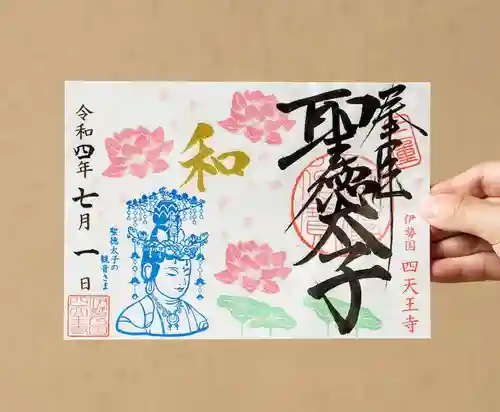 奉拝
聖徳太子
伊勢国 四天王寺
和
聖徳太子の
観音さま
令和四年七月一日